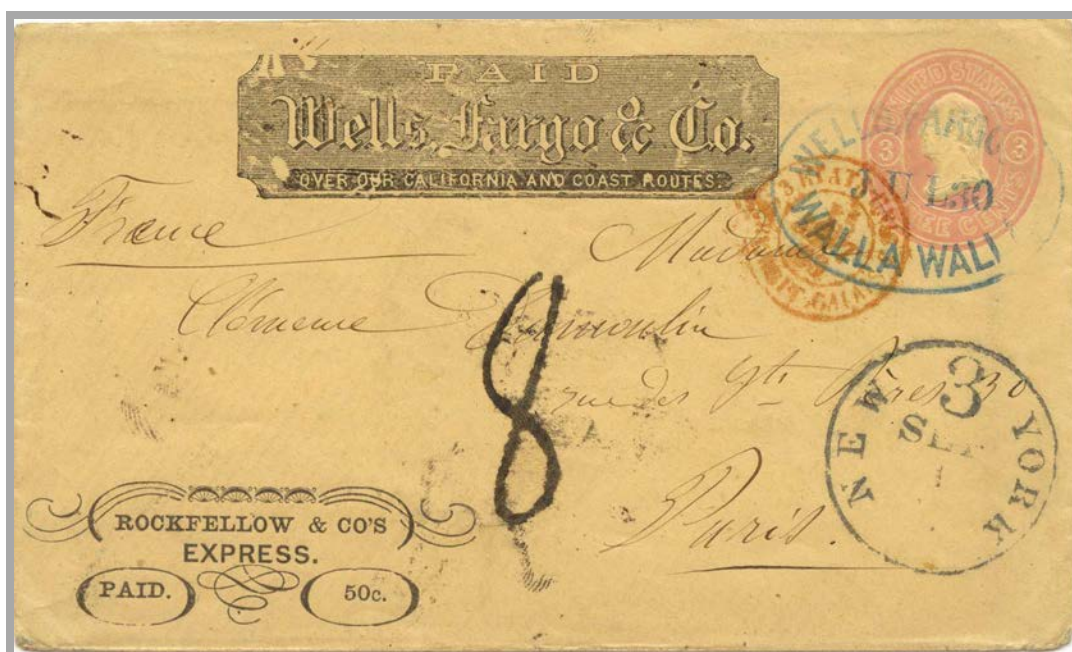 PAID
Wells, Fargo & Co.
OVER OUR CALIFORNIA AND COAST ROUTES.
UNITED STATES
3 3
THREE CENTS
WELLS FARGO
JUL 30
WALLA WALL
France
Madame
Clémence
rue des Sts Pères 30
Paris.
8
NEW YORK
3
SEP
ROCKFELLOW & CO'S
EXPRESS.
PAID. 50c.